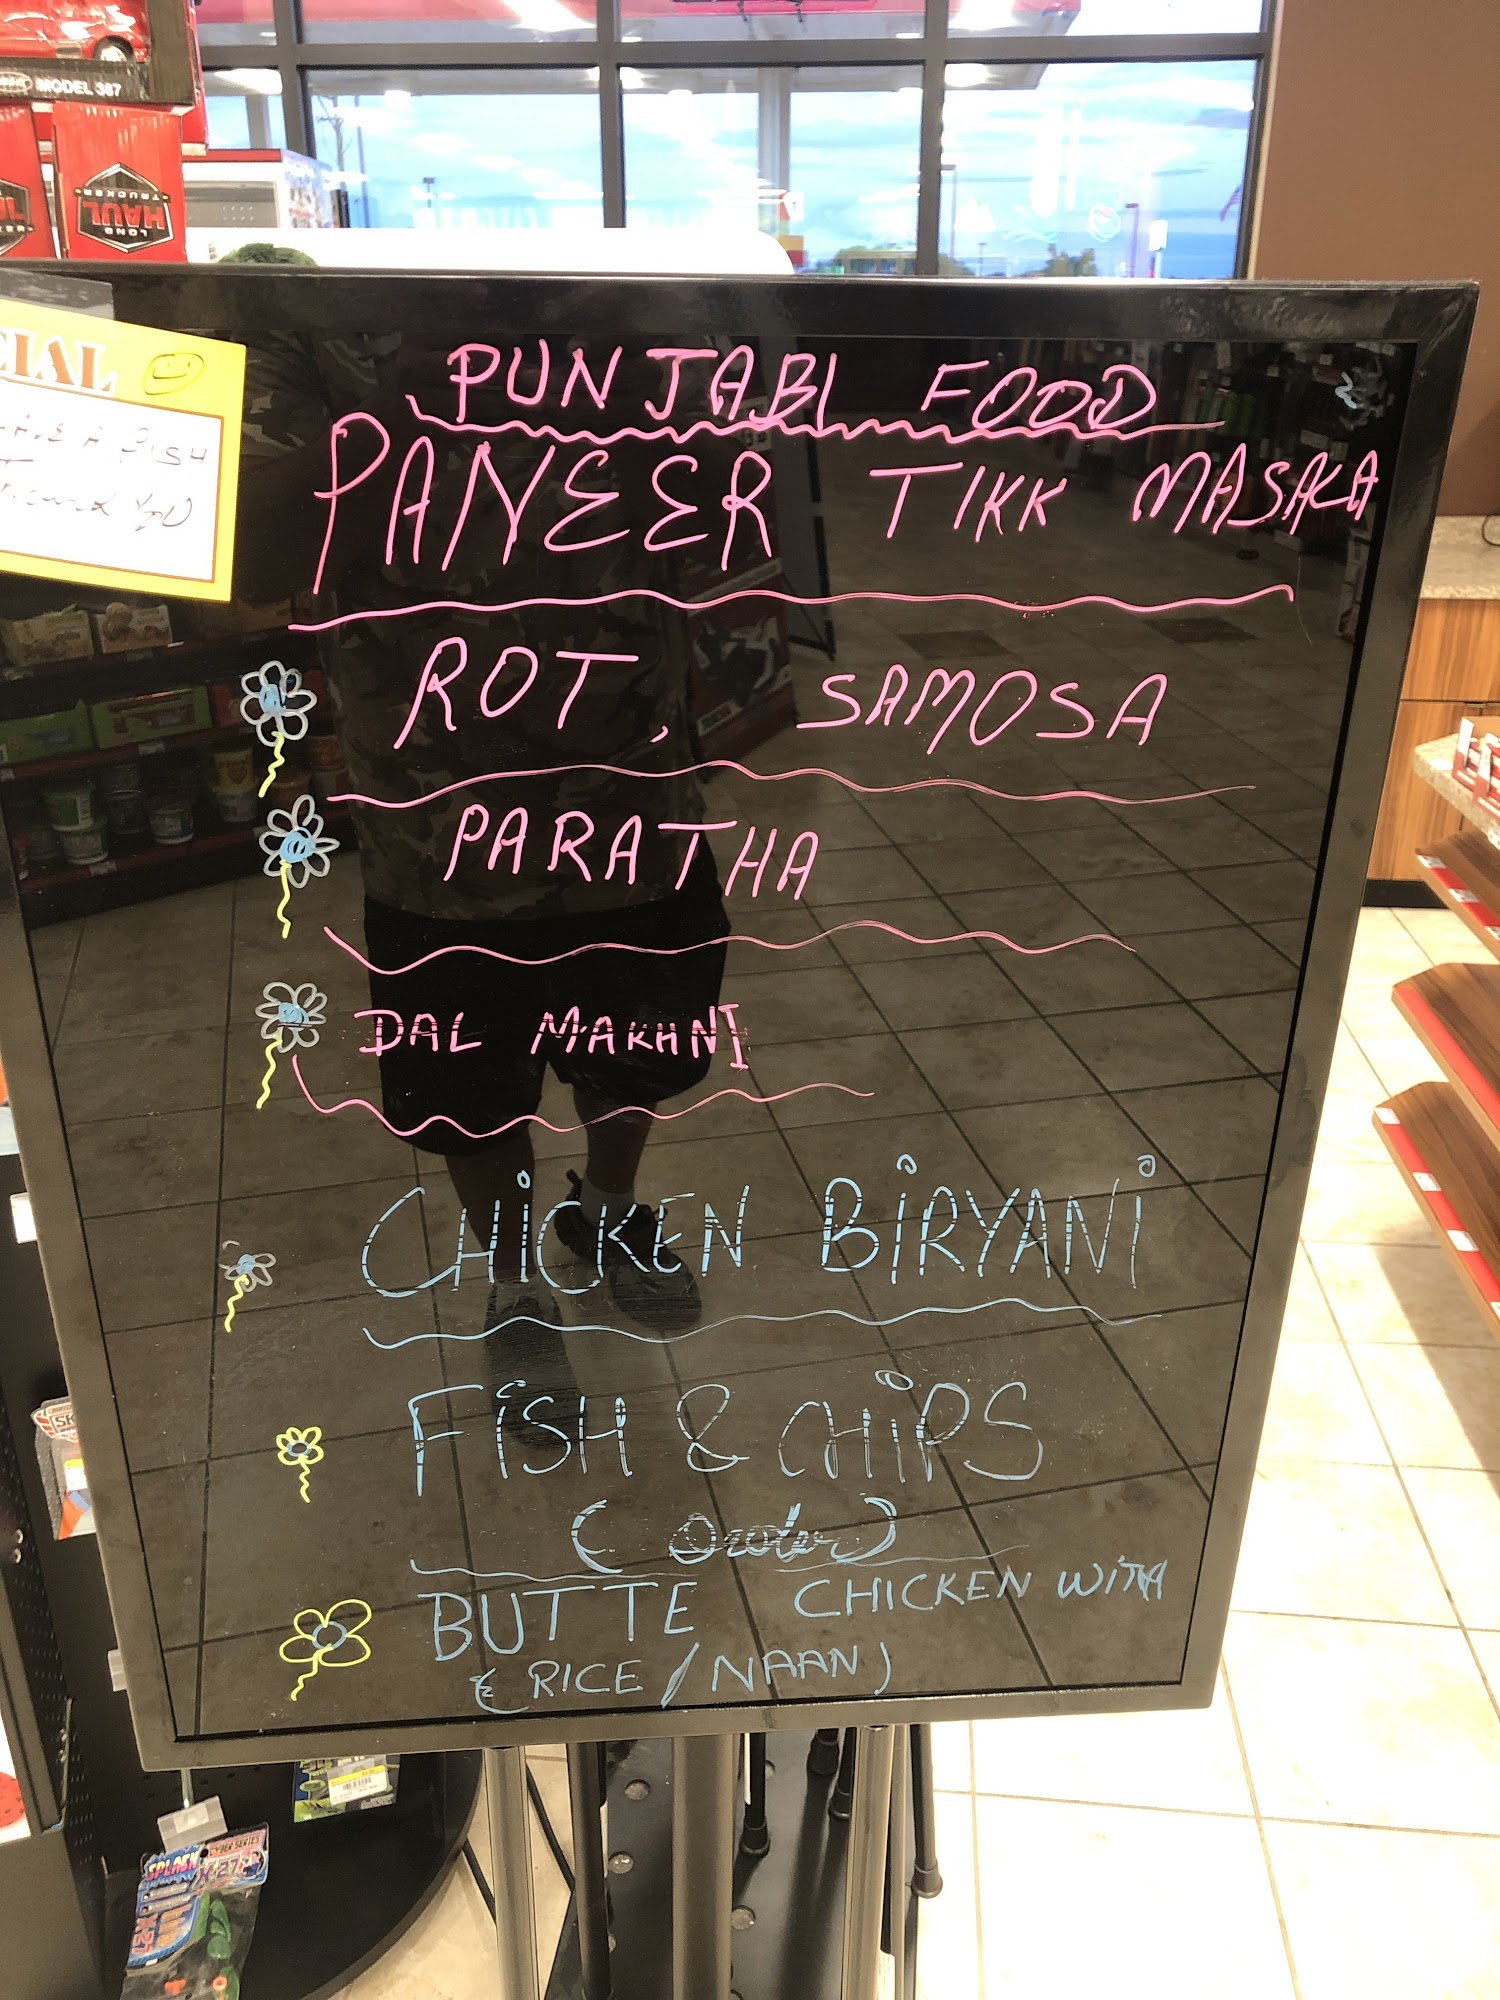 MODEL 387
LONG
HAUL
TRUCKER
CIAL
FISH
Thank YOU
PUNJABI FOOD
PANEER TIKK MASALA
ROT, SAMOSA
PARATHA
DAL MAKHNI
CHiCKEN BiRYANi
FiSH & CHiPS
(Order)
BUTTE CHICKEN WiTH
(RICE/NAAN)
SPLASH
CYBER SERIES
X-27